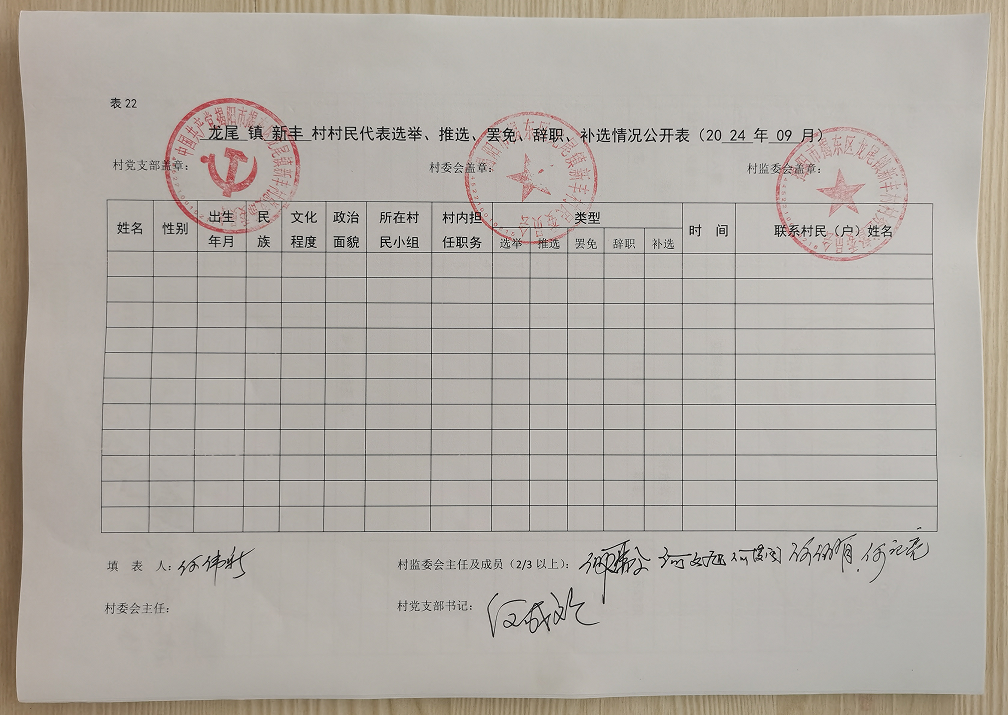 表 22
龙尾 镇 新丰 村村民代表选举、推选、罢免、辞职、补选情况公开表（20 24 年 09 月）
村党支部盖章： 村委会盖章： 村监委会盖章：
姓名 性别 出生年月 民族 文化程度 政治面貌 所在村民小组 村内担任职务 类型 时 间 联系村民（户）姓名
选举 推选 罢免 辞职 补选
填 表 人：何伟新 村监委会主任及成员（2/3 以上）：
村委会主任： 村党支部书记：